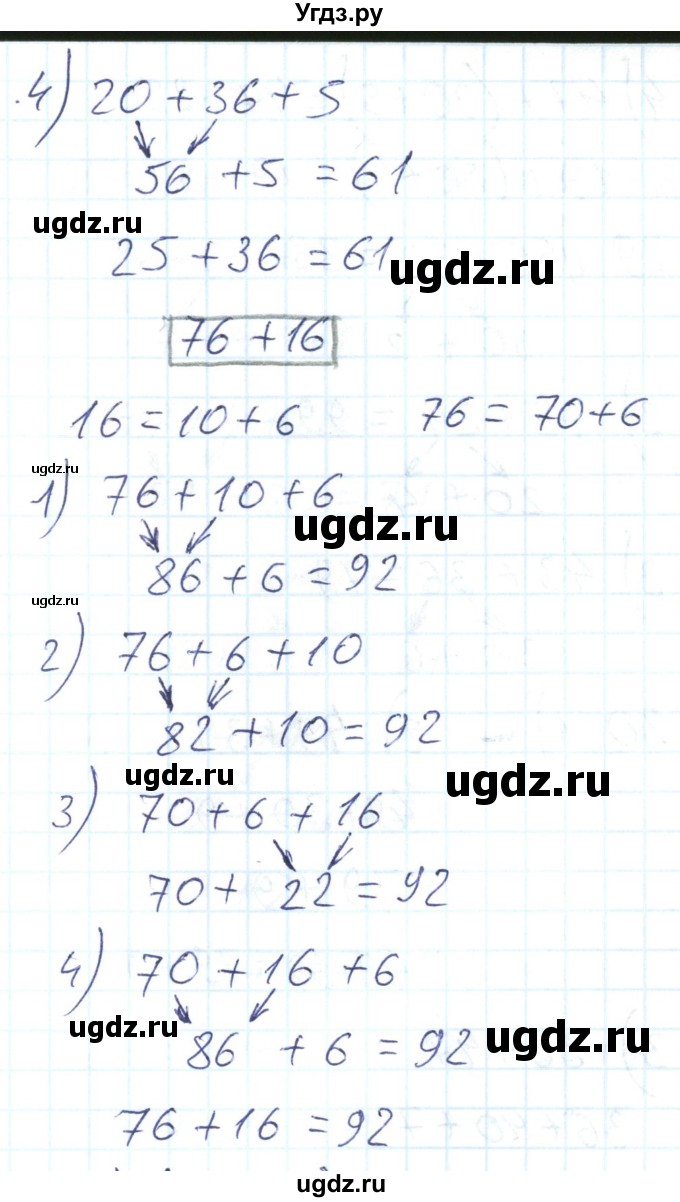 Угдз.ру
4) 20 + 36 + 5
56 + 5 = 61
ugdz.ru
25 + 36 = 61
ugdz.ru
76 + 16
16 = 10 + 6 76 = 70 + 6
ugdz.ru
1) 76 + 10 + 6
ugdz.ru
86 + 6 = 92
ugdz.ru
2) 76 + 6 + 10
82 + 10 = 92
ugdz.ru ugdz.ru
3) 70 + 6 + 16
70 + 22 = 92
4) 70 + 16 + 6
ugdz.ru 86 + 6 = 92 ugdz.ru
76 + 16 = 92
ugdz.ru